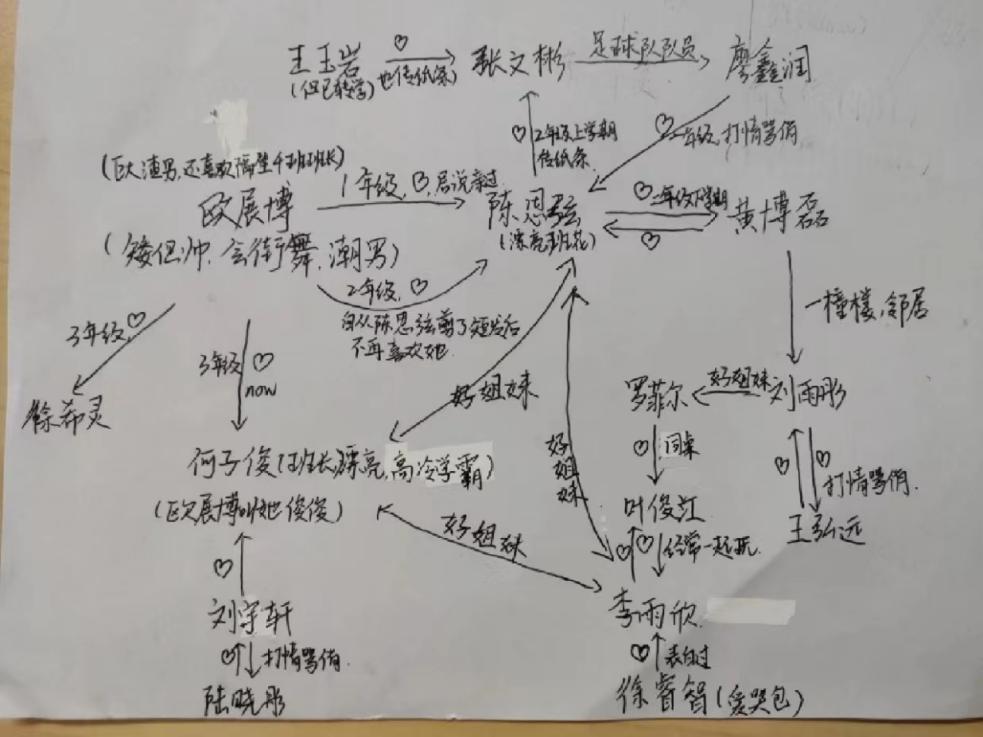 王玉岩 ♡ 张文彬 足球队队员 廖鑫润
(但已转学) 也传纸条
♡ 2年级上学期
传纸条
♡ 一年级,打情骂俏
(巨大渣男,还喜欢隔壁4班班长)
欧展博 1年级,♡,居说亲过 陈思弦 ♡ 二年级下学期 黄博磊
(漂亮班花) ♡
(矮但帅,会街舞,潮男)
2年级,♡
自从陈思弦剪了短发后
不再喜欢她
一橦楼,邻居
3年级,♡
3年级 ♡
now
徐希灵
好姐妹
好姐妹
罗菲尔 好姐妹 刘雨彤
♡ 同桌
♡ ♡ 打情骂俏
何子俊(班长,漂亮,高冷学霸)
(欧展博叫她俊俊)
好姐妹
叶俊江
王弘远
♡ ♡ 经常一起玩
♡
刘宇轩
李雨欣
♡ 打情骂俏
♡ 表白过
陆晓彤
徐睿智(爱哭包)